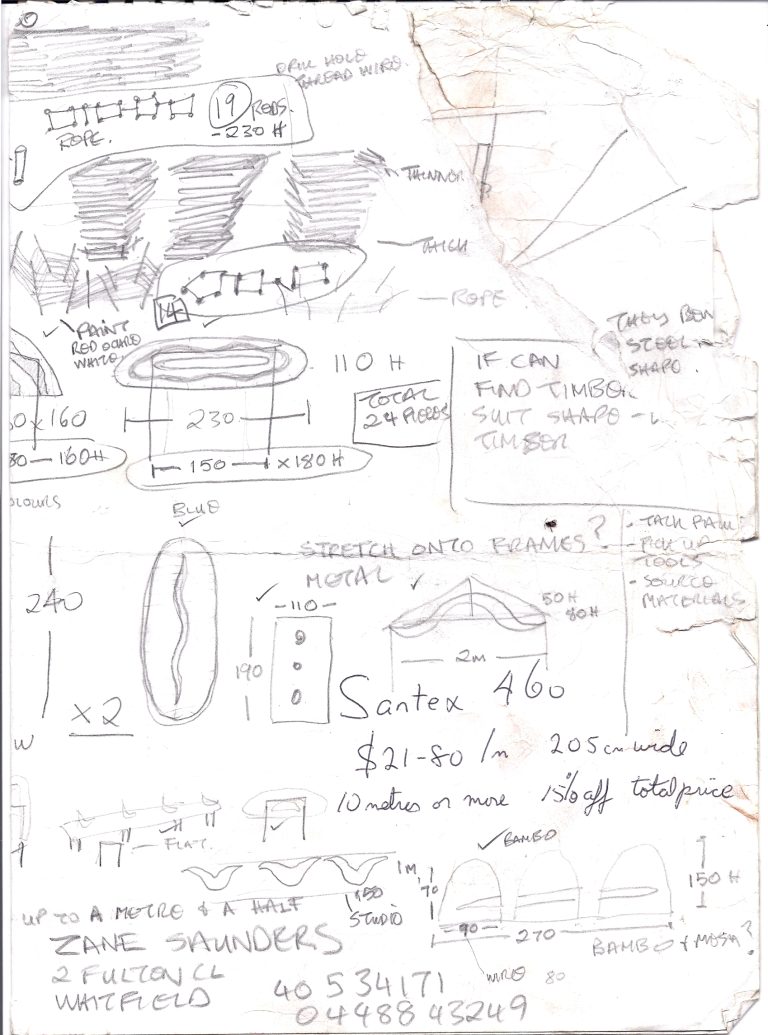 DRILL HOLE
THREAD WIRE.
19 RODS.
-230 H
ROPE.
THINNER
THICK
ROPE
14
PAINT
RED OCHRE
WHITE
110 H
TOTAL
24 PIECES
230
150 × 180 H
× 160
80 — 160H
IF CAN
FIND TIMBER
SUIT SHAPE -
TIMBER
THEY BEN
STEEL
SHAPE.
BLUE
STRETCH ONTO FRAMES?
METAL
240
× 2
110
190
50H
80H
2M
- TACK
- PICK UP
TOOLS
- SOURCE
MATERIALS
Santex 460
$21-80 /m 205 cm wide
10 metres or more 15% off total price
FLAT.
1M,
150
STUDIO
BAMBO
70
150 H
90
270
BAMBO +
WIRE 80
UP TO A METRE & A HALF
ZANE SAUNDERS
2 FULTON CL
WHITFIELD
40 534171
04488 43249